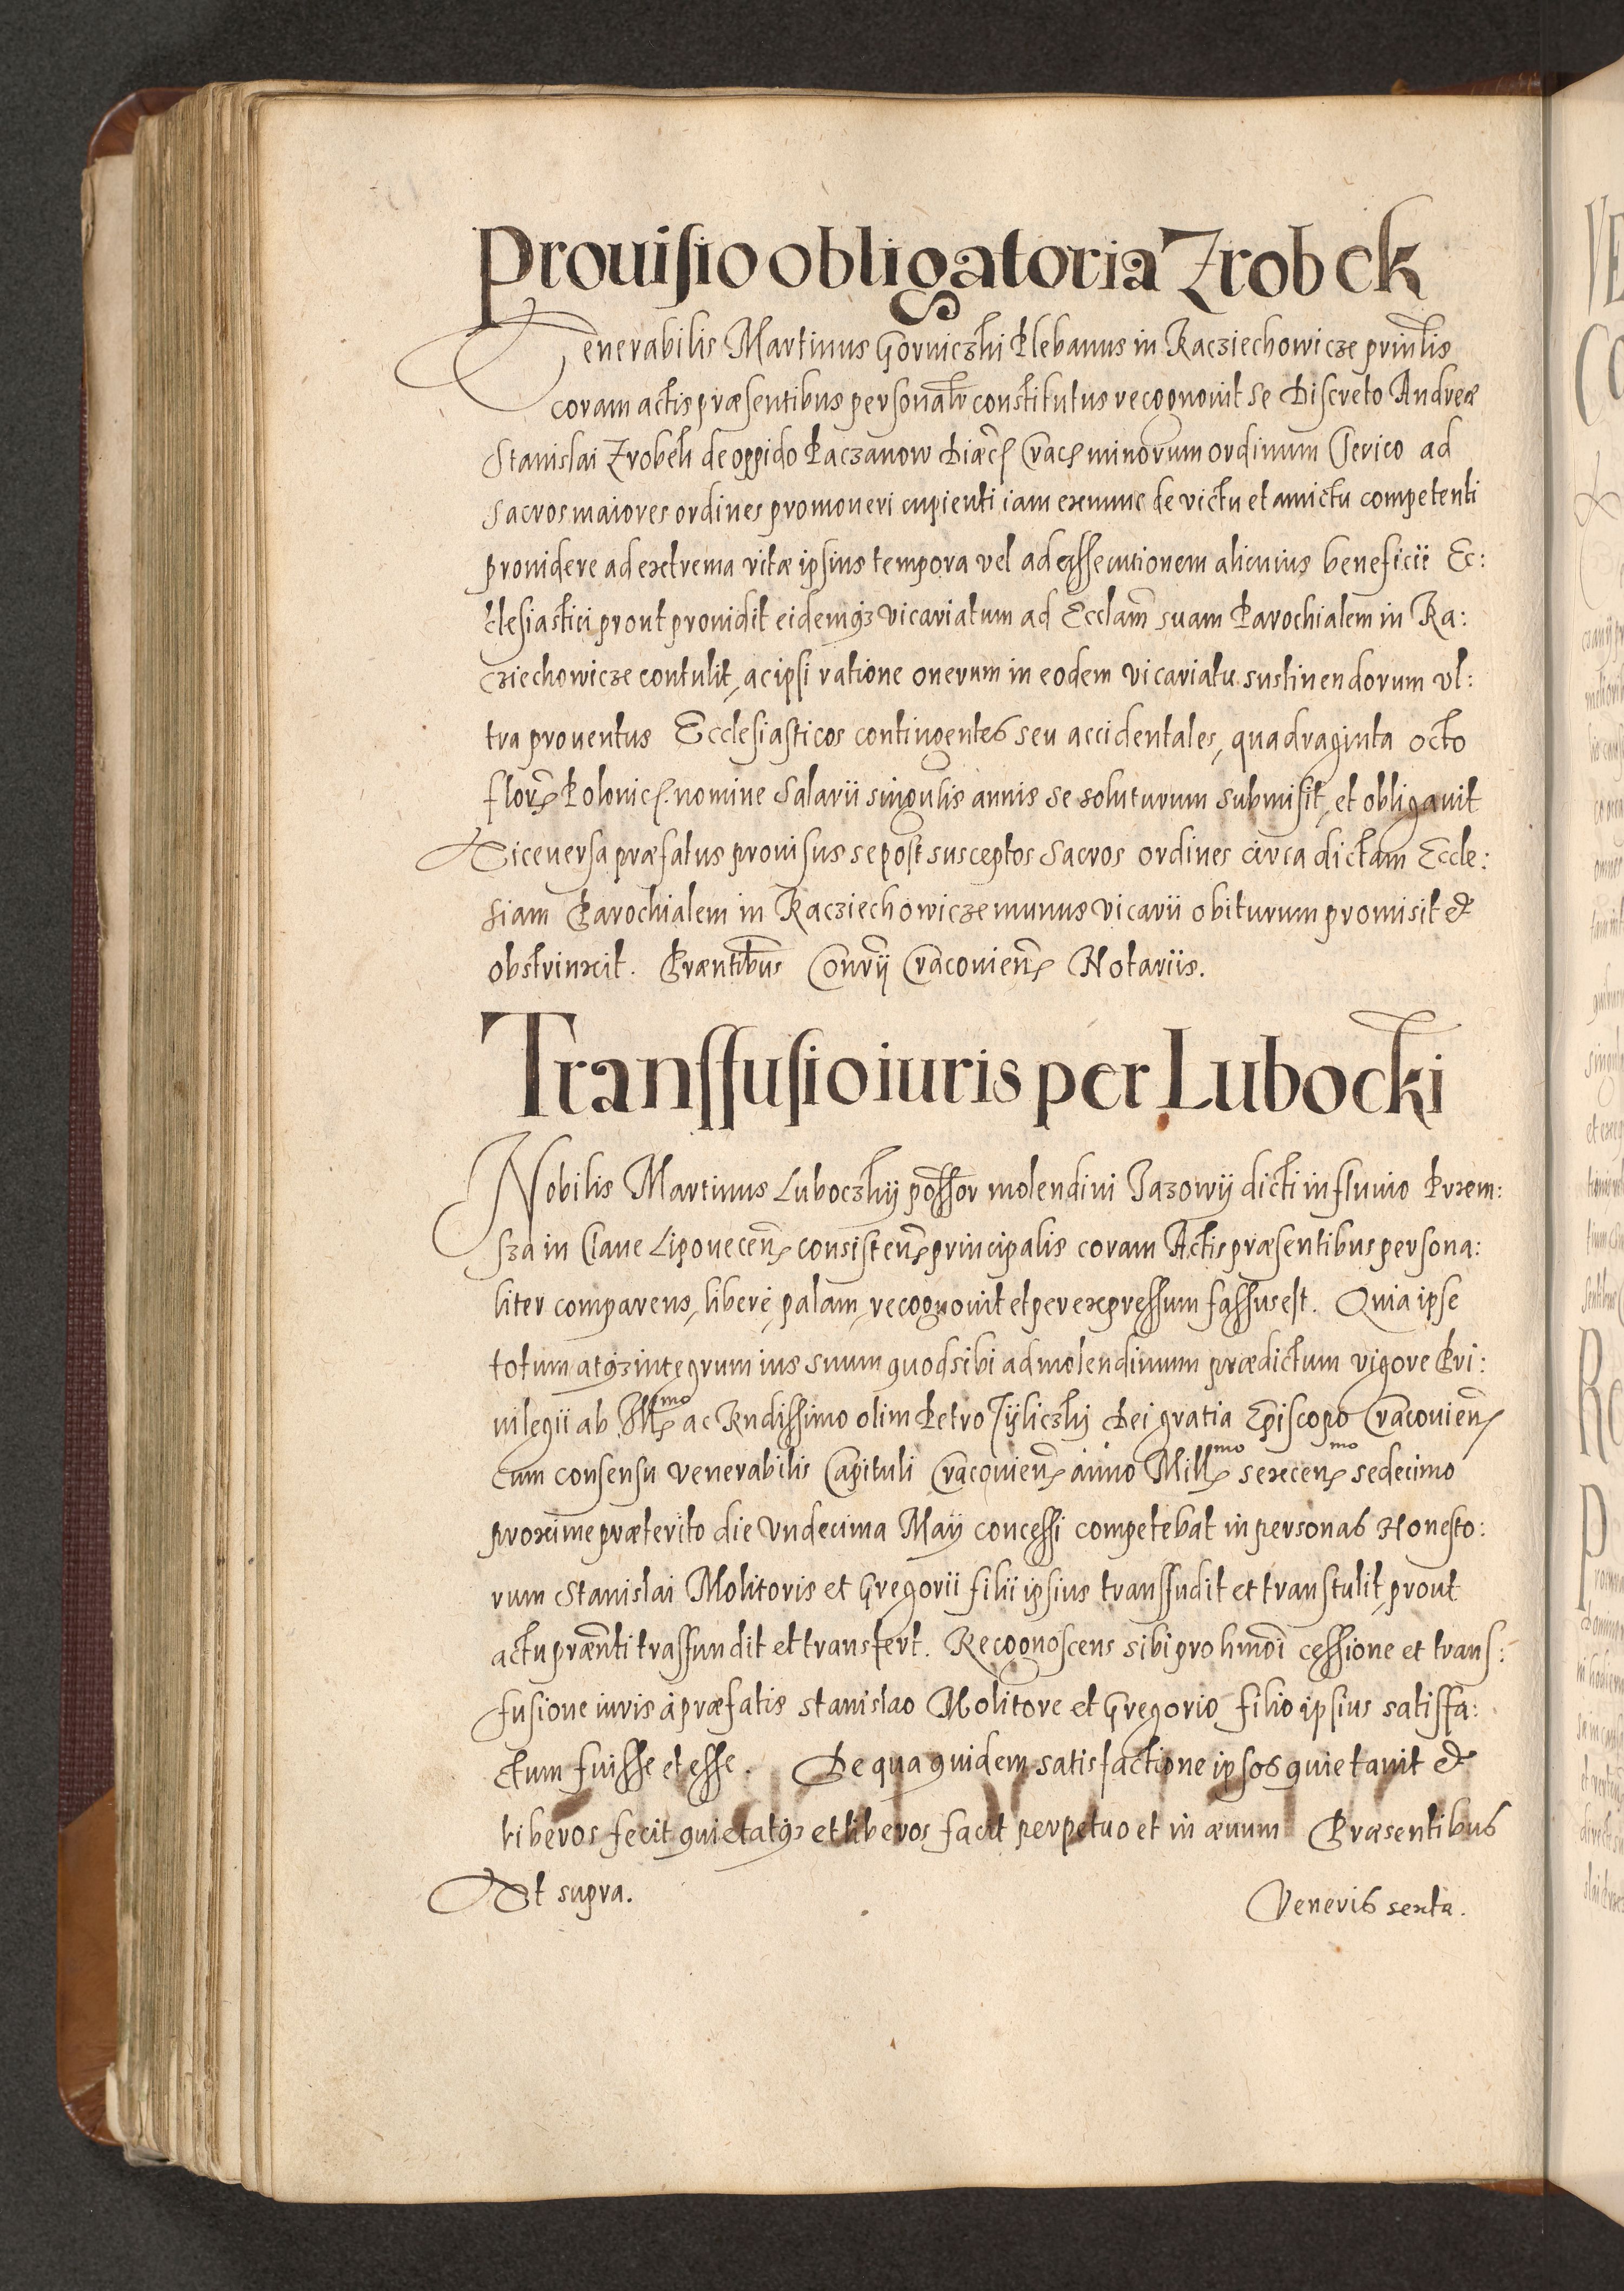 Prouisio obligatoria Zrobek
Venerabilis Martinus Gorniczki Plebanus in Racziechowicze prinlis
coram actis præsentibus personalr constitutus recognouit se Discreto Andreæ
Stanislai Zrobek de oppido Paczanow Diæc Crac minorum ordinum Clerico ad
Sacros maiores ordines promoueri cupienti iam exnunc de victu et amictu competenti
prouidere ad extrema vitæ ipsius tempora vel ad assecutionem alicuius beneficii Ec:
clesiastici prout prouidit eidemq3 vicariatum ad Ecclam suam Parochialem in Ra:
cziechowicze contulit, ac ipsi ratione onerum in eodem vicariatu sustinendorum vl:
tra prouentus Ecclesiasticos contingentes seu accidentales, quadraginta octo
floren Polonic. nomine Salarii singulis annis se soluturum submisit, et obligauit
Viceuersa præfatus prouisus se post susceptos Sacros ordines circa dictam Eccle:
siam Parochialem in Racziechowicze munus vicarii obiturum promisit &
obstrinxit. Præntibus Conrij Cracouien Notariis.
Transfusio iuris per Lubocki
Nobilis Martinus Luboczkij possor molendini Jazowij dicti in fluuio Prxem:
sza in Claue Lipouecen consisten principalis coram Actis præsentibus persona:
liter comparens, libere, palam, recognouit et per expressum fassus est. Quia ipse
totum atq3 integrum ius suum quod sibi ad molendinum prædictum vigore Pri:
uilegii ab Illmo ac Rndissimo olim Petro Tyliczkj Dei gratia Episcopo Cracouien
cum consensu venerabilis Capituli Cracouien anno Millmo sexcenmo sedecimo
proxime præterito die Vndecima Maij concessi competebat in personas Honesto:
rum Stanislai Molitoris et Gregorii filii ipsius transfudit et transtulit, prout
actu prænti trasfundit et transfert. Recognoscens sibi pro hmoi cessione et trans:
fusione iuris à præfatis Stanislao Molitore et Gregorio filio ipsius satisfa:
ctum fuisse et esse. De qua quidem satisfactione ipsos quietauit &
liberos fecit quietatq3 et liberos facit perpetuo et in æuum Præsentibus
Vt supra.
Veneris sexta.